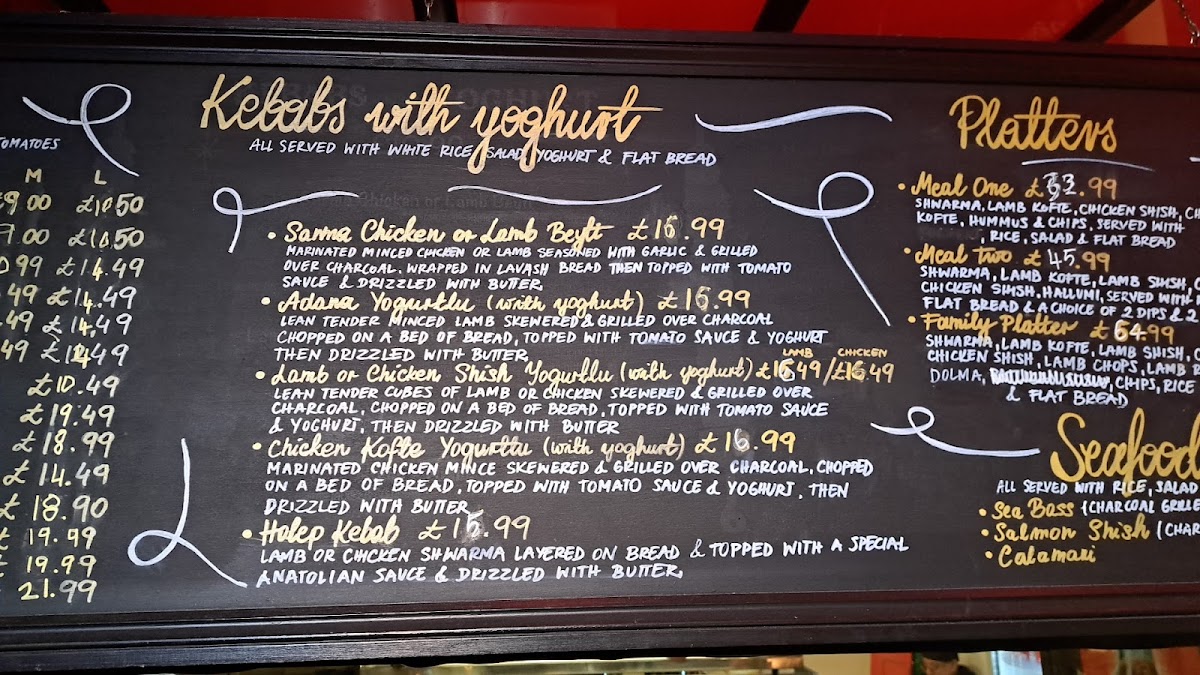 TOMATOES
M L
£9.00 £10.50
9.00 £10.50
£14.49
.49 £14.49
.49 £14.49
49 £1449
£10.49
£19.49
£18.99
£14.49
£ 18.90
£ 19.99
£ 19.99
21.99
Kebabs with yoghurt
ALL SERVED WITH WHITE RICE, SALAD, YOGHURT & FLAT BREAD
• Sarma Chicken or Lamb Beyti £16.99
MARINATED MINCED CHICKEN OR LAMB SEASONED WITH GARLIC & GRILLED
OVER CHARCOAL, WRAPPED IN LAVASH BREAD THEN TOPPED WITH TOMATO
SAUCE & DRIZZLED WITH BUTTER.
• Adana Yogurtlu (with yoghurt) £16.99
LEAN TENDER MINCED LAMB SKEWERED & GRILLED OVER CHARCOAL
CHOPPED ON A BED OF BREAD, TOPPED WITH TOMATO SAUCE & YOGHURT
THEN DRIZZLED WITH BUTTER.
LAMB CHICKEN
• Lamb or Chicken Shish Yogurtlu (with yoghurt) £1649/£16.49
LEAN TENDER CUBES OF LAMB OR CHICKEN SKEWERED & GRILLED OVER
CHARCOAL, CHOPPED ON A BED OF BREAD, TOPPED WITH TOMATO SAUCE
& YOGHURT, THEN DRIZZLED WITH BUTTER
• Chicken Kofte Yogurttu (with yoghurt) £ 16.99
MARINATED CHICKEN MINCE SKEWERED & GRILLED OVER CHARCOAL, CHOPPED
ON A BED OF BREAD, TOPPED WITH TOMATO SAUCE & YOGHURT, THEN
DRIZZLED WITH BUTTER
• Halep Kebab £15.99
LAMB OR CHICKEN SHWARMA LAYERED ON BREAD & TOPPED WITH A SPECIAL
ANATOLIAN SAUCE & DRIZZLED WITH BUTTER.
Platters
• Meal One £32.99
SHWARMA, LAMB KOFTE, CHICKEN SHISH,
KOFTE, HUMMUS & CHIPS, SERVED WITH
RICE, SALAD & FLAT BREAD
• Meal two £45.99
SHWARMA, LAMB KOFTE, LAMB SHISH,
CHICKEN SHISH, HALLUMI, SERVED WITH
FLAT BREAD & A CHOICE OF 2 DIPS & 2
• Family Platter £64.99
SHWARMA, LAMB KOFTE, LAMB SHISH,
CHICKEN SHISH, LAMB CHOPS, LAMB
DOLMA, CHIPS, RICE
& FLAT BREAD
Seafood
ALL SERVED WITH RICE, SALAD
• Sea Bass (CHARCOAL GRILLE
• Salmon Shish (CHAR
• Calamari